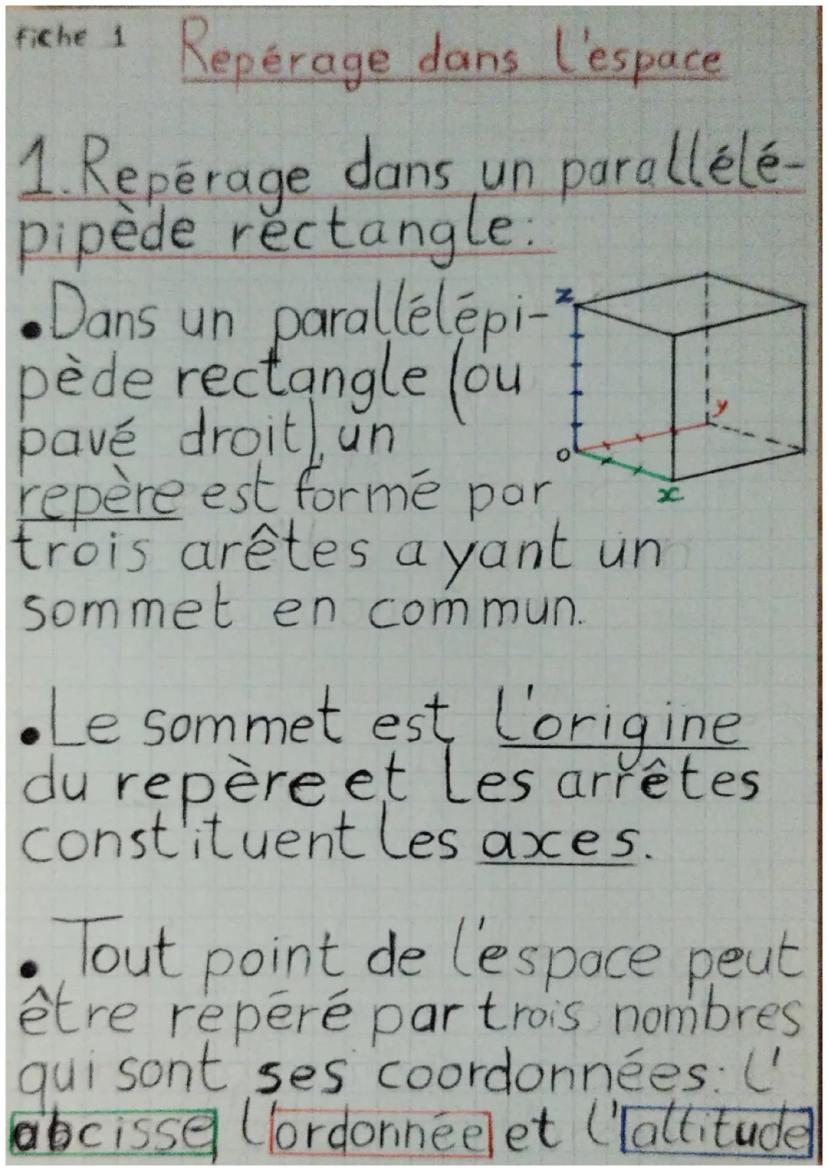 fiche 1
Repérage dans l'espace
1. Repérage dans un parallélé-
pipède rectangle:
• Dans un parallélépi-
pède rectangle (ou
pavé droit), un
repère est formé par
trois arêtes ayant un
sommet en commun.
z
y
o
x
• Le sommet est l'origine
du repère et les arrêtes
constituent les axes.
• Tout point de l'espace peut
être repéré par trois nombres
qui sont ses coordonnées: l'
abcisse l'ordonnée et l'altitude